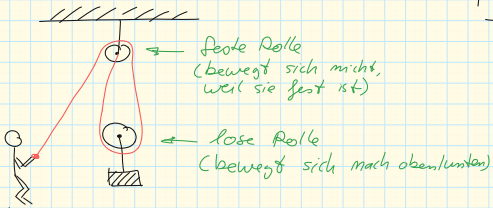 feste Rolle
(bewegt sich nicht,
weil sie fest ist)
lose Rolle
(bewegt sich nach oben/unten)